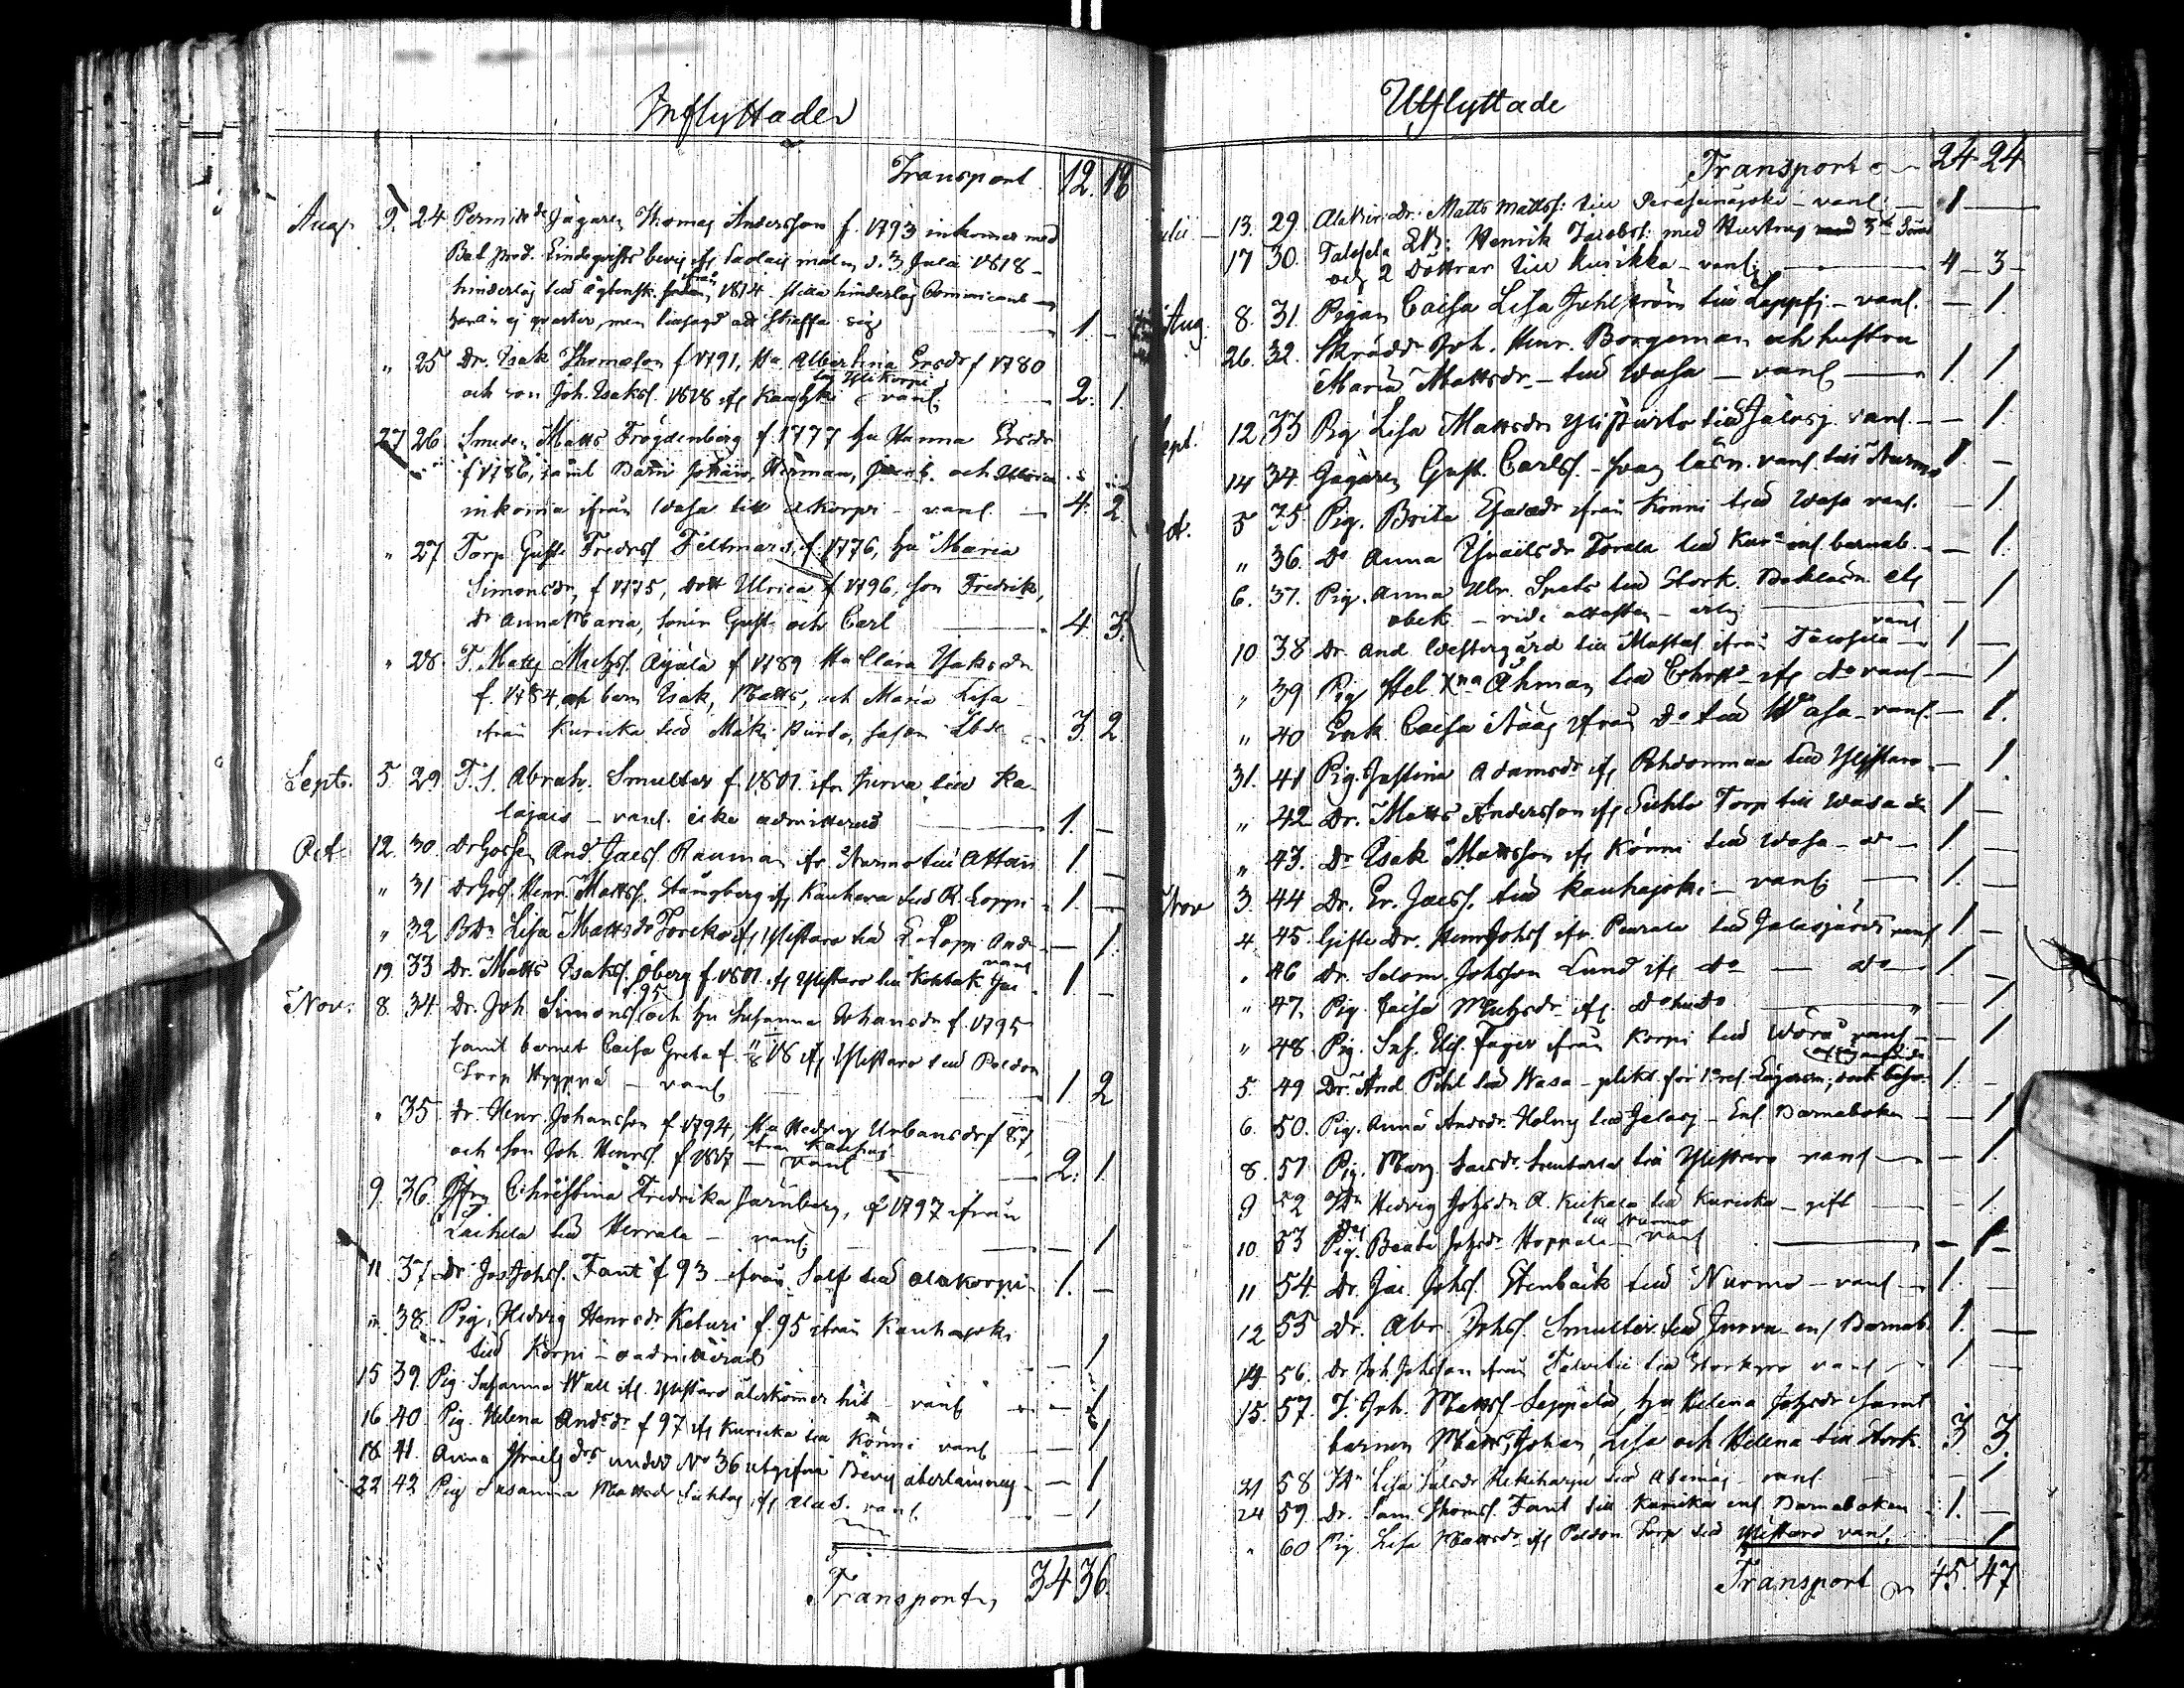 Inflyttade
Transport 12. 18
Aug. 9. 24 Permitt.de Jägaren Thomas Andersson f. 1793 inkommer med
Bat. pred. bevis d. 3 Julii 1818 –
1814
ej men att skaffa sig 1. –
" 25 Dr. Isak Thomasson f 1791, Hu Albertina Ersdr f 1780
och son Joh. Isaksf. 1818 ifr vanl. 2. 1.
27 26 Smeden Matts Frögdenberg f. 1777 hu Hanna Ersdr
f 1786, samt Barn Johan, Herman, Jacob och Ulrica
inkomna ifrån Wasa till Akorpi – vanl. – 4. 2
" 27 Torp. Gust. Fredrsf Feltmars f. 1776, hu Maria
Simonsdr, f 1775, dott Ulrica f 1796, son Fredrik,
dr Anna Maria, söner Gust. och Carl 4. 3.
" 28. T. Matts Michsf. Äyälä f 1789 Hu Clara Isaksdr
f. 1784, och barn Isak, Matts, och Maria Lisa
ifrån Kuricka till Mäki Piirto, 3. 2.
Sept. 5 29 T. S. Abrah. Smulter f. 1801. ifr Jurva till Ka-
lajais – vanl. icke admitterad 1. –
Oct. 12. 30. DrGossen And. Jacsf Rauman ifr. Nurmo till Attan 1. –
" 31 DrGoss. Henr. Mattsf. Stångberg ifr Kauhava till A. Loppi 1. –
" 32 Lisa Mattsdr ifr Ylistaro till – 1.
19 33 Dr. Matts Isaksf. Öberg f. 1801. ifr Ylistaro till vanl 1 –
Nov. 8. 34. Dr. Joh Simonsf 95 och hu Susanna Johansdr f. 1795
samt barnet Caisa Greta f. 18 ifr Ylistaro till Poldon
Torp Hyppä – vanl 1. 2
" 35 dr. Henr Johansson f 1794, Hu Hedvig Urbansdr f 87,
och son Joh. Henrsf. f 1817 – vanl 2. 1
9. 36. Jfru Christina Fredrika Järnberg, f 1797 ifrån
Laihela till Herrala – vanl. – 1
11 37 Dr Jos Johsf. Fant f 93 ifrån Solf till Alakorpi 1. –
" 38. Pig. Hedvig Henrsdr Keturi f. 95 ifrån Kauhajoki
till Korpi – oadmitterad – 1
15 39. Pig. Susanna Wall ifr. Ylistaro återkommer hit – vanl – 1
16 40. Pig. Helena Andrsdr f 97 ifr Kuricka till Könni vanl – 1
18 41. Anna Israelsdrs under No 36 utgifna Bevis återlämnas – 1
22 42 Pig Susanna Mattsdr ifr Alas. vanl. – 1
Transport, 34 36.
Utflyttade
Transport 24 24
Julii 13. 29. Dr. Matts Mattsf: till Peräseinäjoki – vanl: 1 –
17 30. Talosela Henrik Jacobsf: med Hustru 3ne Söner
och 2 Döttrar till Kurikka – vanl: 4 – 3 –
Aug. 8. 31. Pigan Caisa Lisa Juhlström till Lappfj. – vanl. – 1.
26. 32. Skrädd. Joh. Henr. Borgeman och hustru
Maria Mattsdr – till Wasa – vanl – 1. 1.
Sept. 12 33 Pig Lisa Mattsdr Ylipiirto till Jalasj. vanl. – 1.
14 34. Jägaren Gust. Carlsf. – svag läsn. vanl. till Nurmo 1 –
Oct. 5 35. Pig. Brita Esaiædr ifrån Könni till Wasa vanl. – 1.
" 36. Do Anna Israilsdr Torala till enl. barnab. – 1.
6. 37. Pig. Anna Ulr. Spets till Stork. Boklärn.
obek. – vide attesten – – 1
10 38. Dr. And. Westergård till Mustas. ifrån Talosela vanl 1 –
" 39 Pig Hel. Xna Åhman till ifr do vanl – 1
" 40 Enk. Caisa ifrån Do till Wasa – vanl. – 1.
31. 41 Pig. Justina Adamsdr ifr Rhdonmaa till Ylistaro – 1
" 42 Dr. Matts Andersson ifr Torp till Wasa 1 –
" 43. Dr Isak Mattsson ifr Könni till Wasa – do – 1 –
Nov 3. 44 Dr. Er. Jacsf. till Kauhajoki – vanl: 1. –
4. 45. Gifte Dr. Henr Johsf ifr. Peurala till Jalasjärvi vanl 1 –
" 46 Dr. Salom. Johsson Lund ifr do – do 1. –
" 47. Pig. Caisa Michsdr ifr. do till do – 1
" 48. Pig. Sus. Elis. Fager ifrån Korpi till Wörå vanl – – 1
5. 49 Dr. And. Pihl till Wasa – 1. –
6. 50. Pig. Anna Andrsdr. Holmg till Jalasj. – Enl. Barnaboken – 1
8. 51 Pig. Marg. Jacsdr. till Ylistaro vanl – 1.
9 52 Hedvig Johsdr A. Kuckola till Kuricka – gift – 1.
10. 53 Pig. Beata Johsdr Hoppala – till Nurmo vanl – 1 –
11 54. Dr. Jac. Johsf. Stenback till Nurmo – vanl – 1. –
12 55 Dr. Abr. Johsf. Smulter till Jurva – enl Barnab. 1. –
14. 56. Dr. Joh. Johsson ifrån Talvitie till Storkyro vanl 1 –
15. 57. T. Joh. Mattsf Seppälä, hu Helena Johsdr samt
barnen Matts, Johan, Lisa och Helena till Stork. 3 3.
21 58 Lisa till vanl – 1
24 59. Dr. Sam. Thomsf. Fant till Kuricka enl Barnaboken 1. –
" 60 Pig. Lisa Mattsdr ifr Poldon Torp till Ylistaro vanl. 1
Transport 45. 47